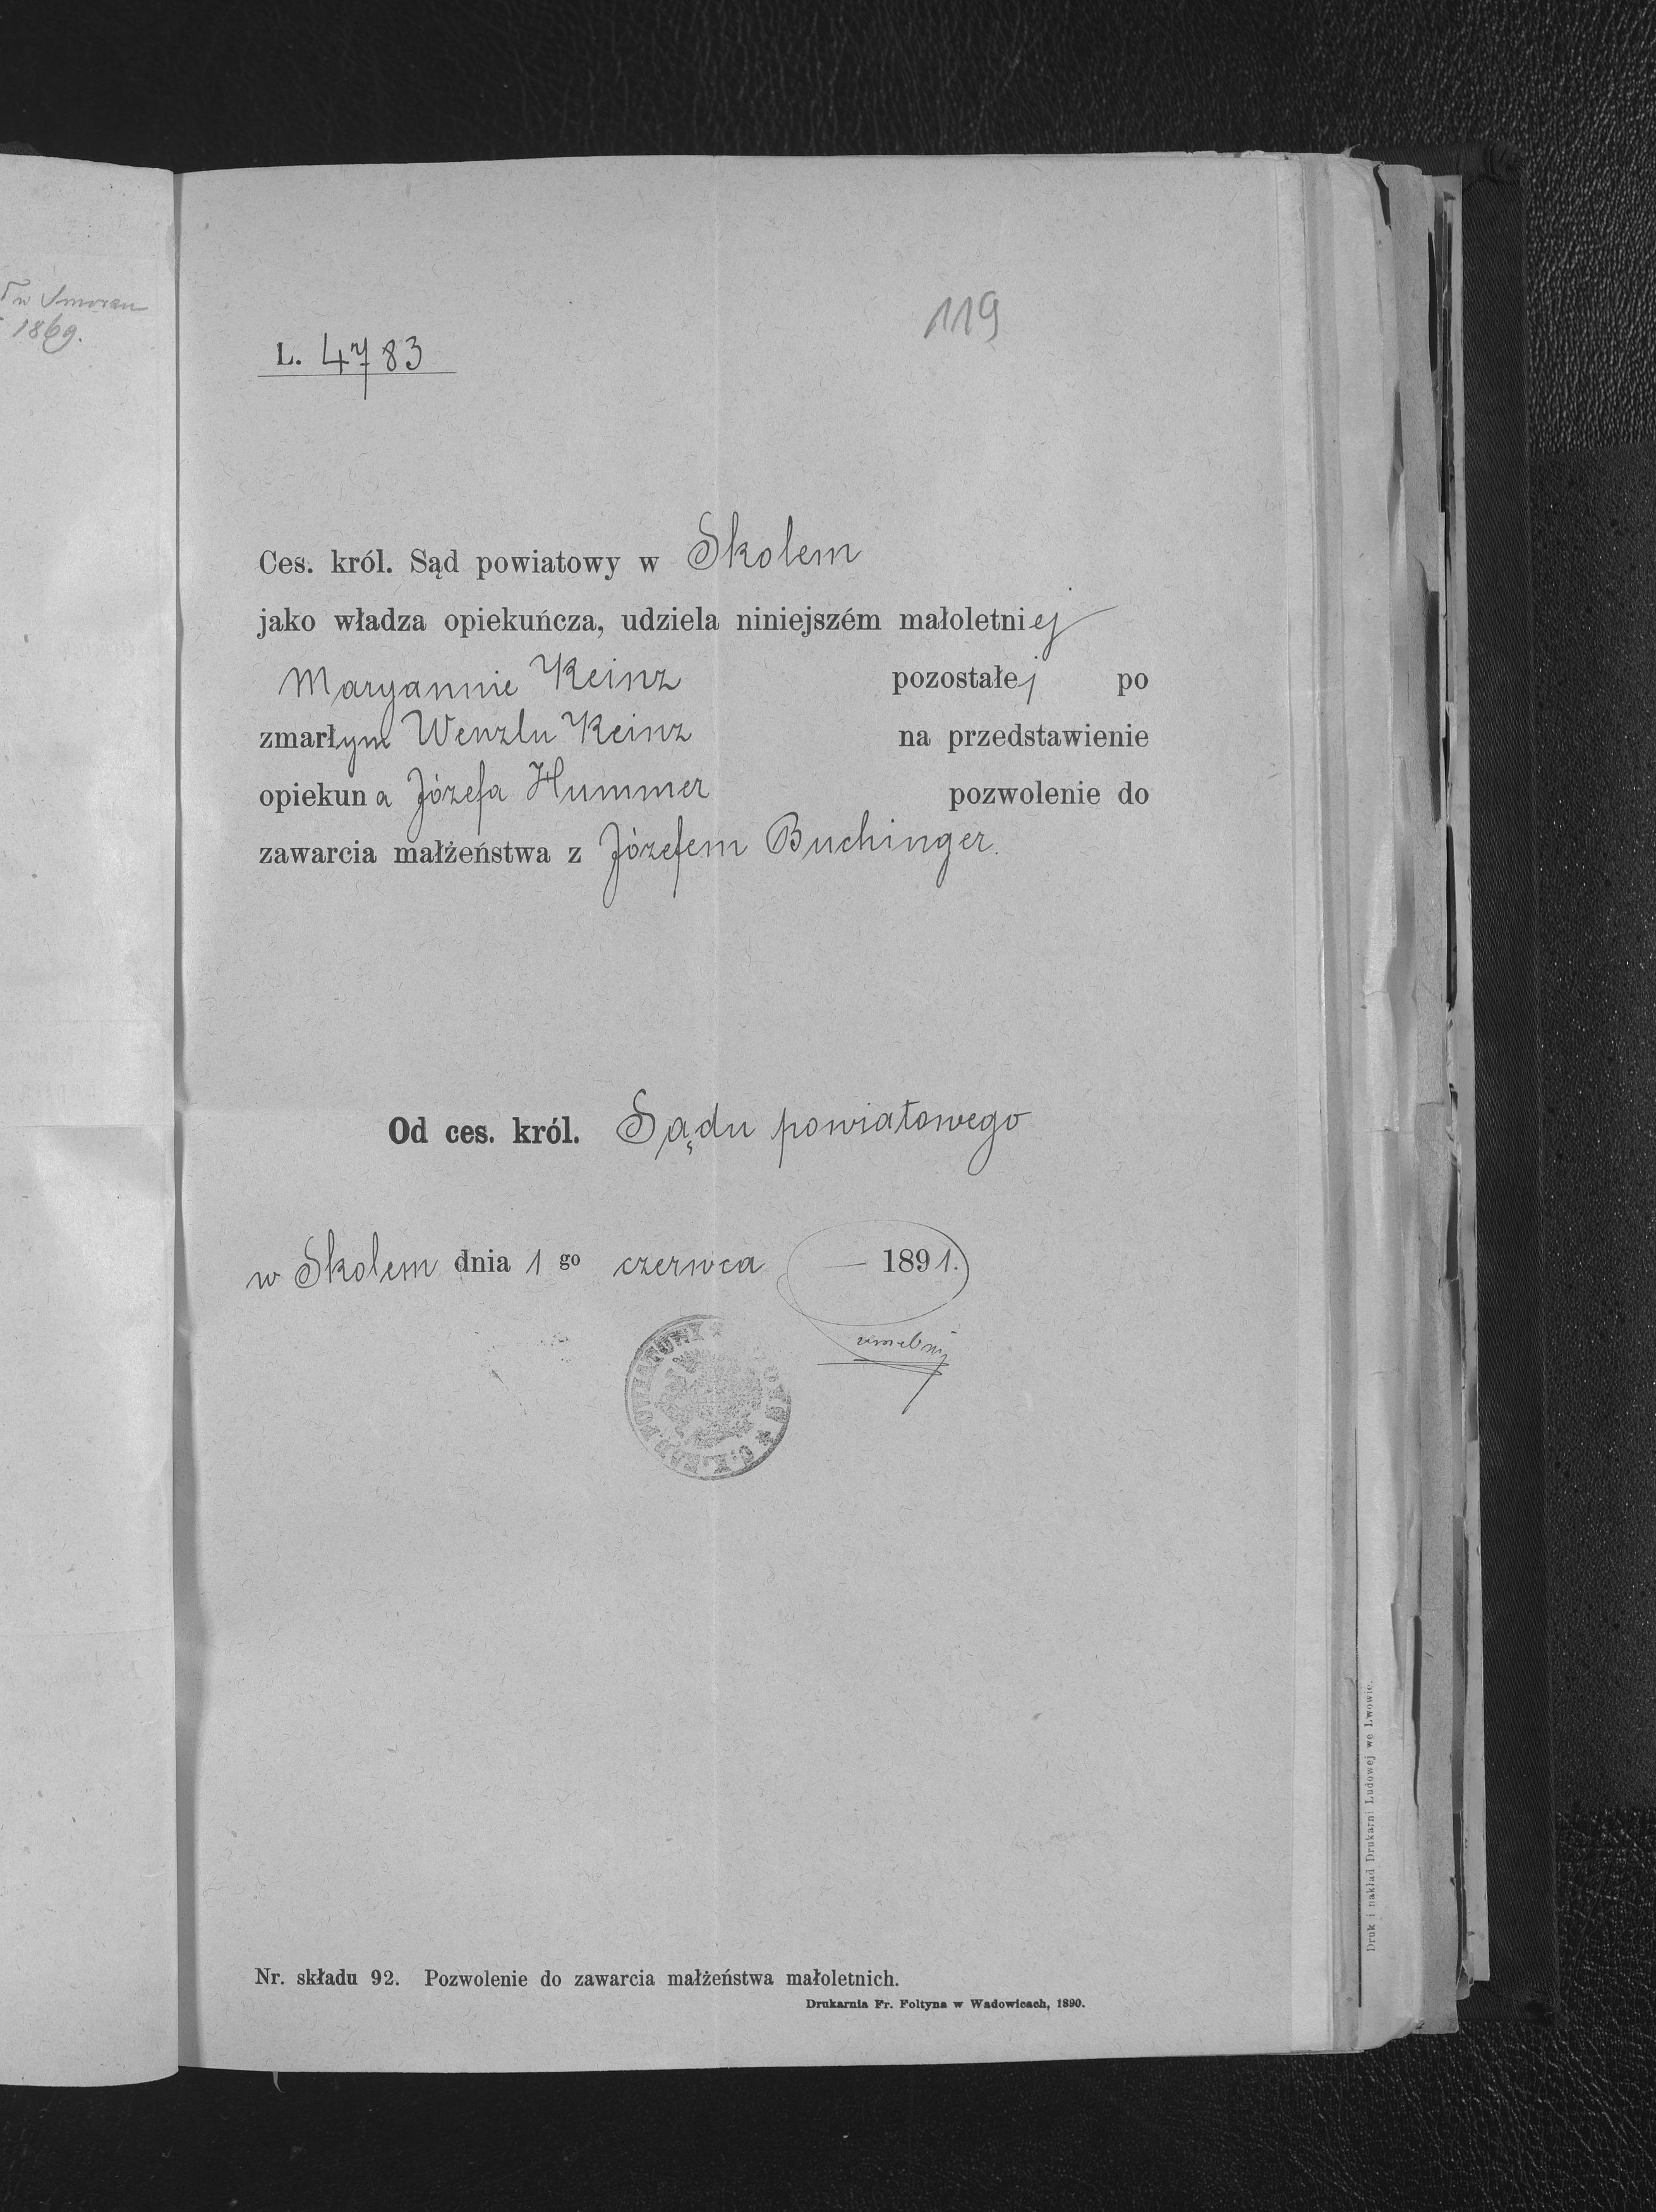 1869.
119
L. 4783
Ces. król. Sąd powiatowy w Skolem
jako władza opiekuńcza, udziela niniejszém małoletniej
Maryannie Keinz pozostałej po
zmarłym Wenzlu Keinz na przedstawienie
opiekuna Józefa Hummer pozwolenie do
zawarcia małżeństwa z Józefem Buchinger.
Od ces. król. Sądu powiatowego
w Skolem dnia 1 go czerwca — 1891.
Nr. składu 92. Pozwolenie do zawarcia małżeństwa małoletnich.
Drukarnia Fr. Foltyna w Wadowicach, 1890.
Druk i nakład Drukarni Ludowej we Lwowie.